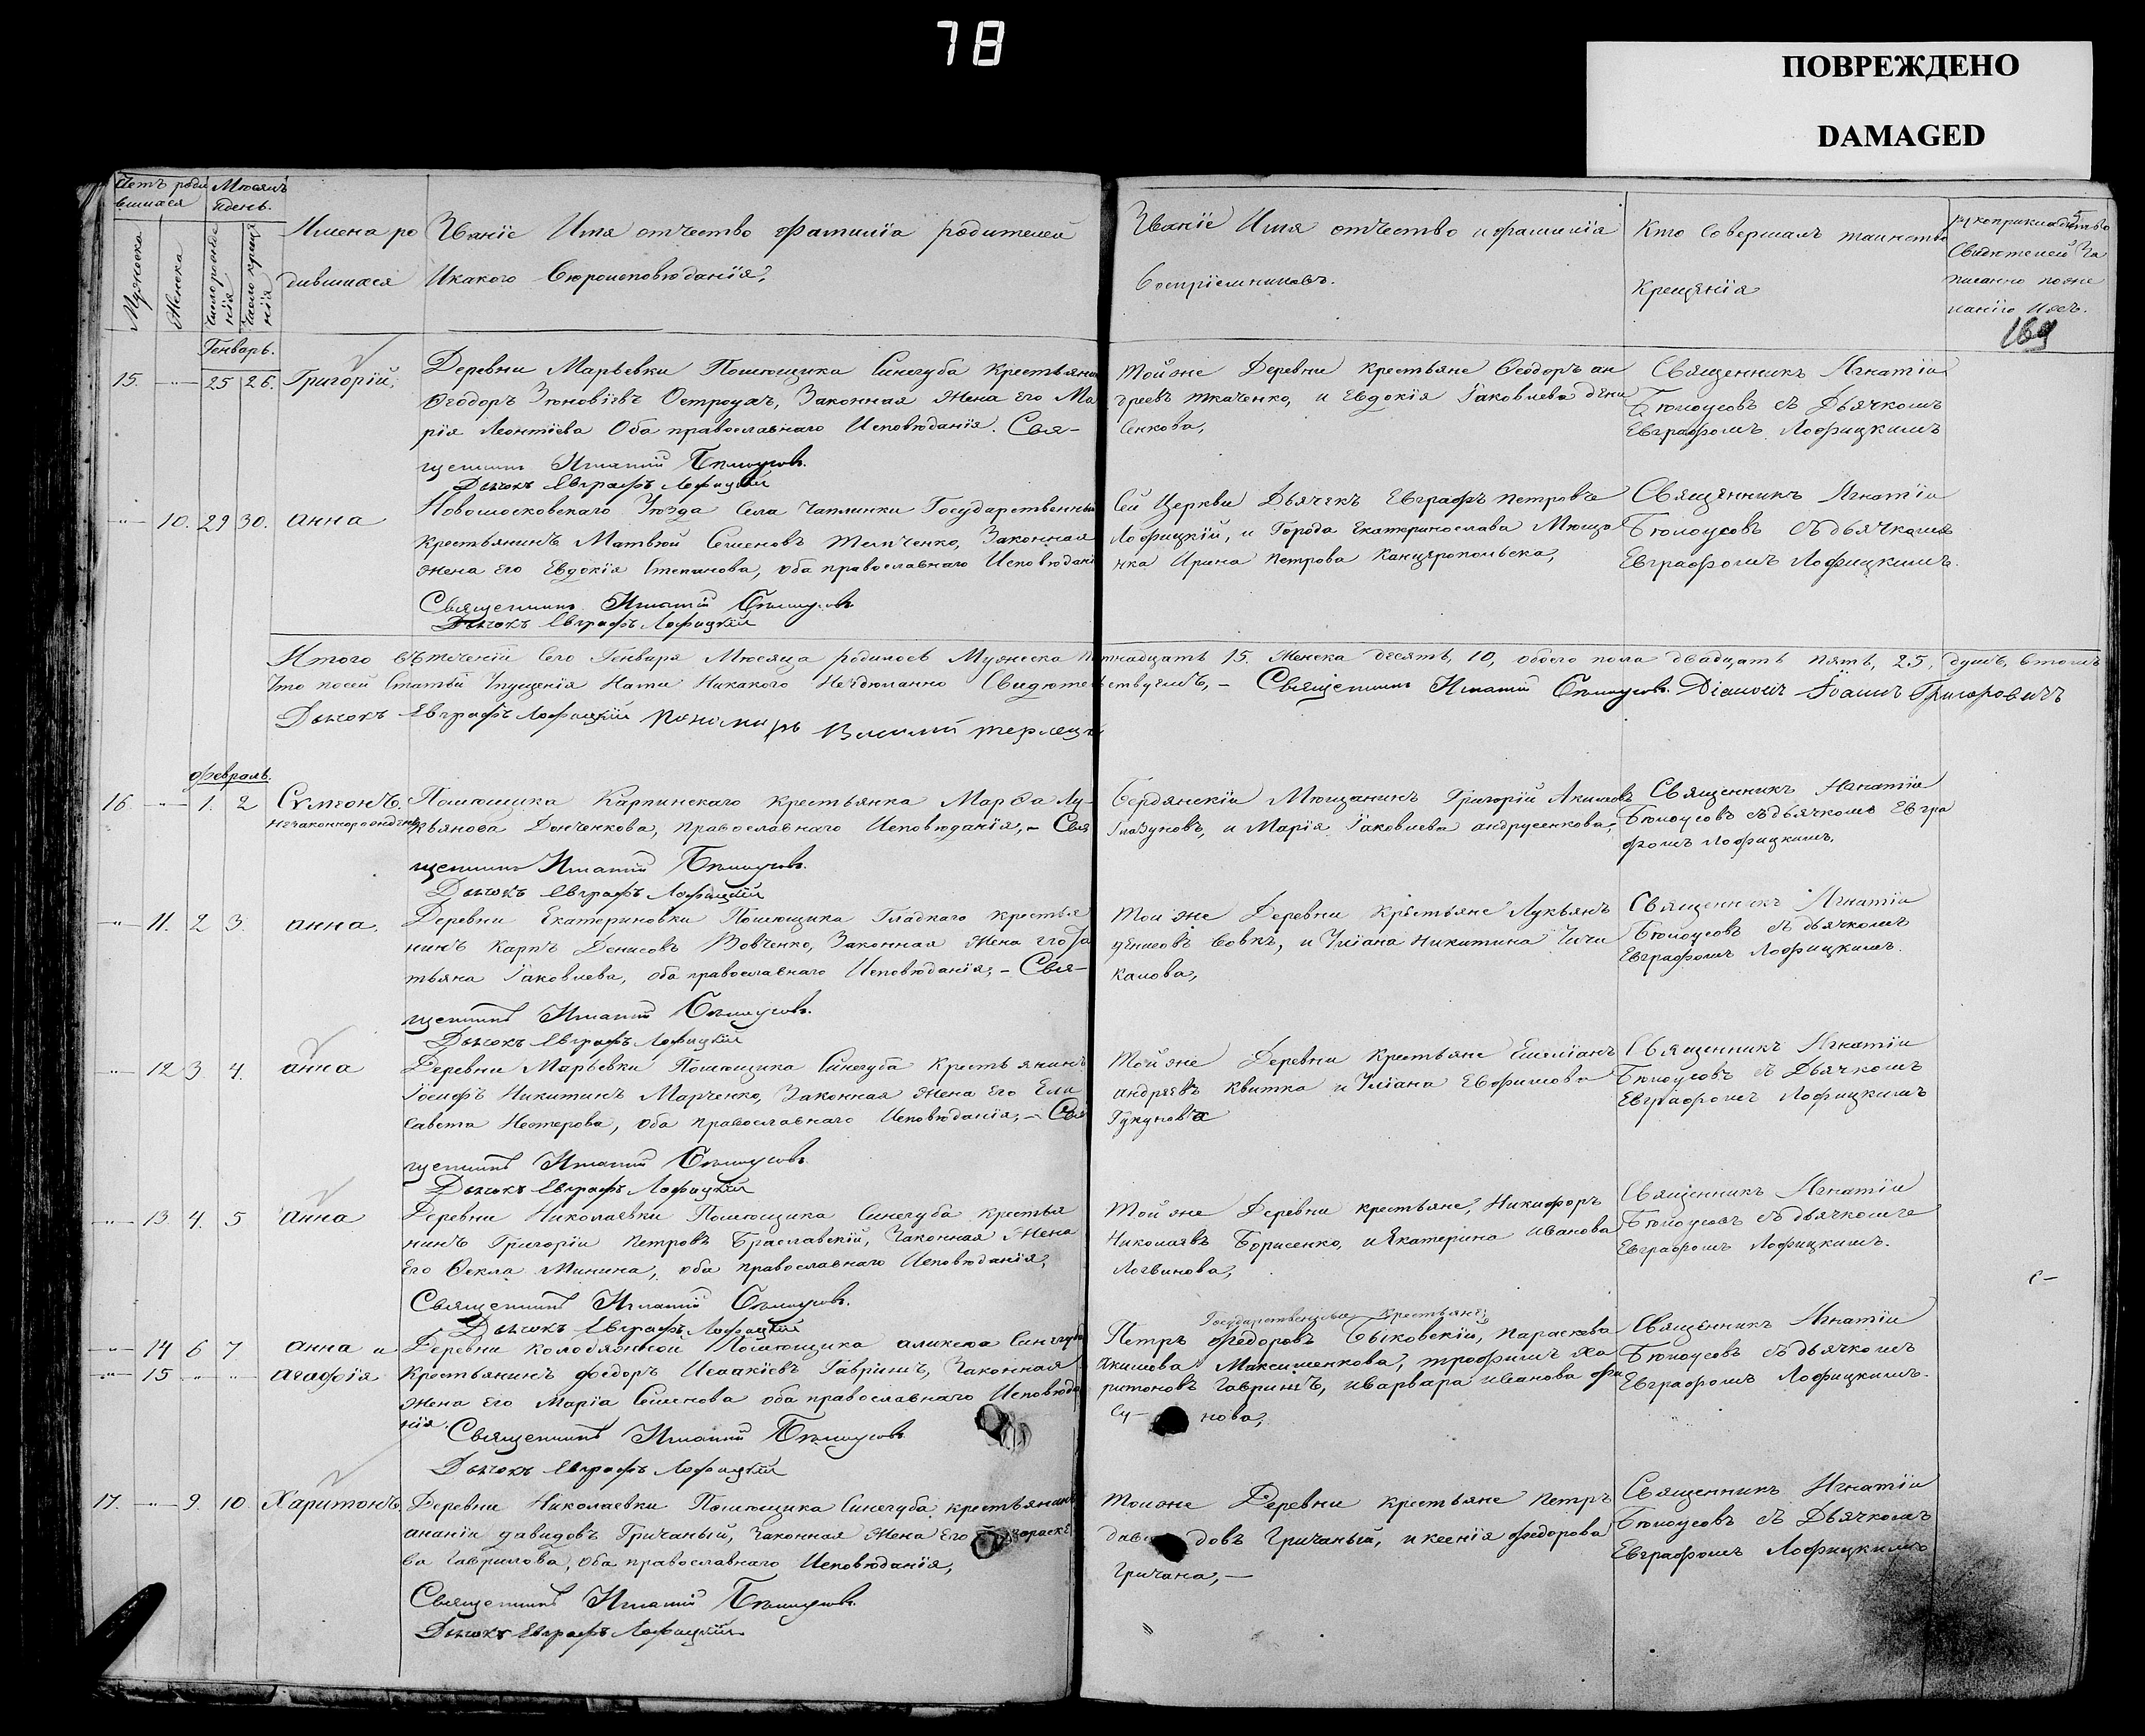 78
ПОВРЕЖДЕНО
DAMAGED
Щетъ роди
вшихся
Мѣсяцъ
и день.
Мужеска
Женска
Число рожде
нія
Число креще
нія
Имена ро
дившихся
Званіе Имя отчество Фамилія родителей
И какого вѣроисповѣданія,
Званіе Имя отчество и фамилія
воспріемниковъ.
Кто Совершалъ таинство
Крещенія
рукоприкладство
Свидѣтелей За
писанно по же
ланію Ихъ.
169
Генварь.
15. 25 26. Григорій,
Деревни Марьевки Помѣщика Синегуба крестьянин
Ѳеодоръ Зѣновіевъ Остроухъ, Законная Жена его Ма
рія Леонтіева Оба православнаго Исповѣданія. Свя-
щенникъ Игнатій Бѣлоусовъ.
Дьячокъ Евграфъ Лофицкій
Той же Деревни крестьяне Ѳеодоръ ан
дреевъ ткаченко, и Евдокія Іаковлева дени
сенкова,
Священникъ Игнатіи
Бѣлоусовъ съ Дьячкомъ
Евграфомъ Лофицкимъ
10. 29 30. анна
Новомосковскаго Уѣзда Села Чаплинки Государственный
крестьянинъ Матвѣй Семеновъ Темченко, Законная
жена Его Евдокія Степанова, оба православнаго Исповѣдані
Священникъ Игнатій Бѣлоусовъ
Дьячокъ Евграфъ Лофицкій
Сей Церкви Дьячекъ Евграфъ петровъ
Лофицкій, и Города Екатеринослава Мѣща
нка Ирина Петрова Канцеропольска,
Священникъ Игнатіи
Бѣлоусовъ съ дьячкомъ
Евграфомъ Лофицкимъ.
Итого въ теченіи Сего Генваря Мѣсяца родилось Мужеска пятнадцать 15. Женска десять, 10, обоего пола двадцать пять, 25, душъ, в томъ
Что по сей Статьи Упущенія Нами Никакого Не здѣланно Свидѣтельствуемъ, - Священникъ Игнатій Бѣлоусовъ. Діаконъ Іоаннъ Григоровичъ
Дьячокъ Евграфъ Лофицкій Пономарь Василій терлецкій
февраль.
16 1. 2 Сѵмеонъ.
незаконнорожденъ
Помѣщика Карпинскаго крестьянка Марѳа Лу-
кьянова Донченкова, православнаго Исповѣданія, - Свя
щенникъ Игнатій Бѣлоусовъ.
Дьячокъ Евграфъ Лофицкій
Бердянскіи Мѣщанинъ Григорій Акимовъ
Глазуновъ, и Марія Іаковлева андрусенкова,
Священникъ Игнатіи
Бѣлоусовъ съ дьячкомъ Евгра
фомъ Лофицкимъ.
11. 2 3. анна.
Деревни Екатериновки Помѣщика Гладкаго крестья
нинъ Карпъ Денисовъ Вовченко, Законная Жена его Та
тьяна Іаковлева, оба православнаго Исповѣданія, - Свя-
щенникъ Игнатій Бѣлоусовъ.
Дьячокъ Евграфъ Лофицкій
Той же Деревни крестьяне Лукьянъ
денисовъ Вовкъ, и Уліана Никитина Чичи
калова,
Священникъ Игнатіи
Бѣлоусовъ съ дьячкомъ
Евграфомъ Лофицкимъ.
12 3 4. анна
Деревни Марьевки Помѣщика Синегуба Крестьянинъ
Іосифъ Никитинъ Марченко, Законная Жена Его Ели
савета Нестерова, оба православнаго Исповѣданія, - Свя
щенникъ Игнатій Бѣлоусовъ
Дьячокъ Евграфъ Лофицкій
Той же Деревни крестьяне Емеліанъ
андреевъ квитка и Уліана Евфимова
Священникъ Игнатіи
Бѣлоусовъ съ Дьячкомъ
Евграфомъ Лофицкимъ
13. 4. 5 анна
Деревни Николаевки Помѣщика Синегуба крестья
нинъ Григоріи Петровъ Браславскій, Законная Жена
Его Ѳекла Минина, оба православнаго Исповѣданія,
Священникъ Игнатій Бѣлоусовъ.
Дьячокъ Евграфъ Лофицкій
Той же Деревни крестьяне, Никифоръ
Николаевъ Борисенко, и Екатерина Иванова
Логвинова,
Священникъ Игнатіи
Бѣлоусовъ съ дьячкомъ
Евграфомъ Лофицкимъ.
14 6 7 анна и
15 агафія
Деревни колодяжной Помѣщика алексѣя Синегуба
Крестьянинъ федоръ Исаакіевъ Гавришъ, Законная
жена Его Марія Семенова оба православнаго Исповѣда
нія.
Священникъ Игнатій Бѣлоусовъ
Дьячокъ Евграфъ Лофицкій
Государственные Крестьяне,
Петръ федоровъ Быковскіи, параскева
Якимова Максименкова, трофимъ Ха
ритоновъ Гавришъ, и варвара иванова фи
нова,
Священникъ Игнатіи
Бѣлоусовъ съ дьячкомъ
Евграфомъ Лофицкимъ.
17. 9. 10. Харитонъ.
Деревни Николаевки Помѣщика Синегуба крестьянинъ
ананіи давидовъ Гричаный, Законная Жена Его параске
ва Гаврилова, оба православнаго Исповѣданія,
Священникъ Игнатій Бѣлоусовъ.
Дьячокъ Евграфъ Лофицкій
Той же Деревни крестьяне петръ
давидовъ Гричаный, и ксенія федорова
Гричана, -
Священникъ Игнатіи
Бѣлоусовъ съ Дьячкомъ
Евграфомъ Лофицкимъ